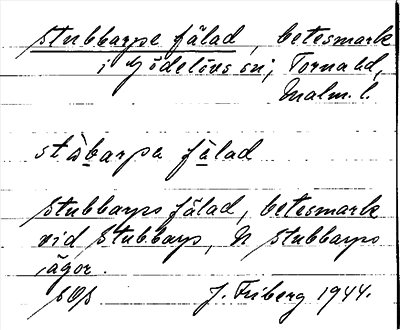 Stubbarpe fälad, betesmark
i Gödelövs sn; Torna hd,
Malm. l.
stàbarpa fälad
Stubbarps fälad, betesmark
vid Stubbarp, N Stubbarps
ägor.
J. Friberg 1944.